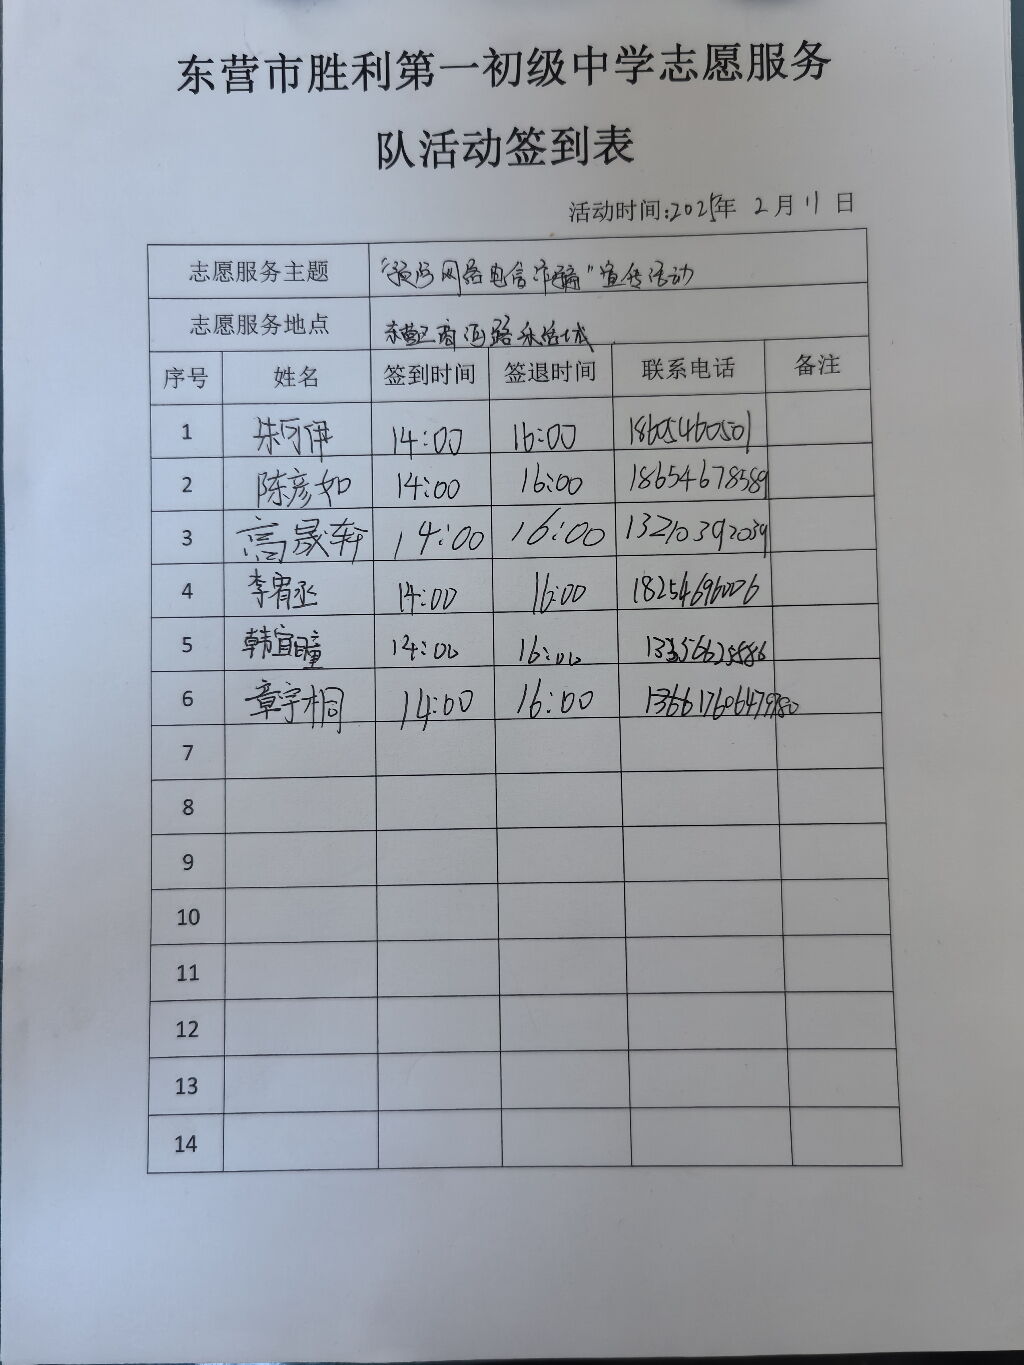 东营市胜利第一初级中学志愿服务
队活动签到表
活动时间:2025年 2 月 11 日
志愿服务主题 "预防网络电信诈骗"宣传活动
志愿服务地点 东营区商河路永活城
序号 姓名 签到时间 签退时间 联系电话 备注
1 朱可伊 14:00 16:00 18605460501
2 陈彦如 14:00 16:00 18654678589
3 高晟轩 14:00 16:00 13210392039
4 李胄丞 14:00 16:00 18254696006
5 韩宜曈 14:00 16:00
6 章宇桐 14:00 16:00
7
8
9
10
11
12
13
14